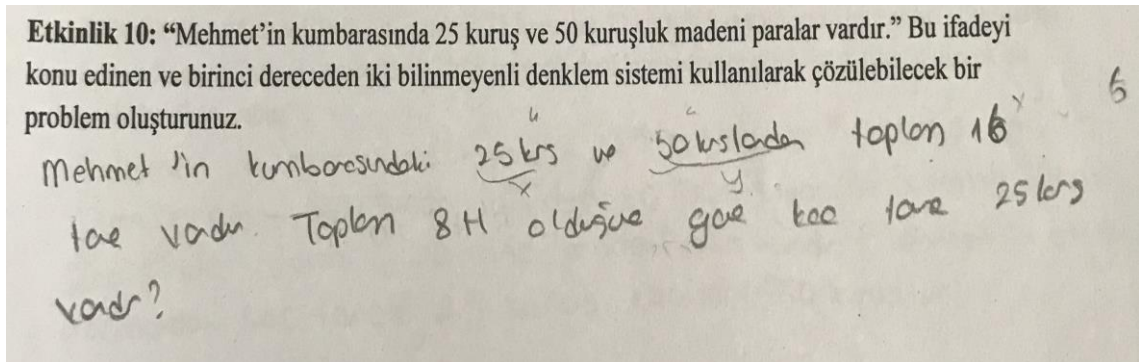 Etkinlik 10: “Mehmet’in kumbarasında 25 kuruş ve 50 kuruşluk madeni paralar vardır.” Bu ifadeyi
konu edinen ve birinci dereceden iki bilinmeyenli denklem sistemi kullanılarak çözülebilecek bir
problem oluşturunuz.
Mehmet'in kumbarasındaki 25 krs ve 50 krslardan toplam 16
x y
tane vardır. Toplam 8 tl olduğuna göre kaç tane 25 krs
vardır?